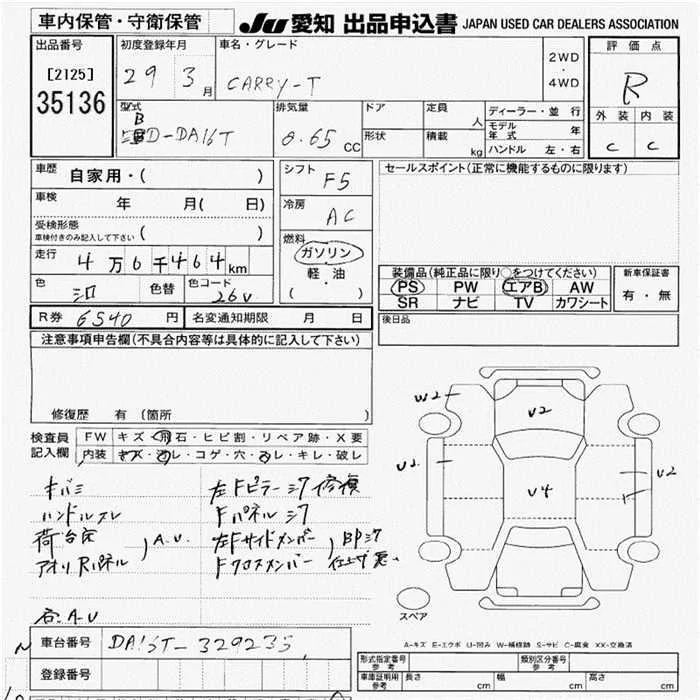 車内保管・守衛保管
JU 愛知 出品申込書 JAPAN USED CAR DEALERS ASSOCIATION
出品番号
[2125]
35136
初度登録年月
29 3月
車名・グレード
CARRY-T
2WD
・
4WD
評価点
R
外装 内装
C C
型式
B
D-DA16T
排気量
0.65 CC
ドア
形状
定員 人
積載 kg
ディーラー・並行
モデル年式 年
ハンドル 左・右
車歴 自家用・( )
車検 年 月( 日)
受検形態
車検付きのみ記入して下さい ( )
走行 4万6千464km
色 色替 色コード 26U
シフト F5
冷房 AC
燃料
ガソリン
軽・油
( )
セールスポイント(正常に機能するものに限ります)
装備品(純正品に限り○をつけてください)
PS PW エアB AW
SR ナビ TV カワシート
新車保証書
有・無
後日品
R券 6540円
名変通知期限 月 日
注意事項申告欄(不具合内容等は具体的に記入して下さい)
修復歴 有(箇所 )
検査員
記入欄
FW キズ・飛石・ヒビ割・リペア跡・X要
内装 キズ・汚レ・コゲ・穴・スレ・キレ・破レ
キバミ
ハンドルスレ
荷台床
アオリRパネル
A.U
左Fピラーシワ修復
Fパネルシワ
左Fサイドメンバー
Fクロスメンバー
BPシワ
仕上ゲ悪い
各A-U
W2
U2
U2
U4
U2
スペア
A-キズ E-エクボ U-凹み W-補修跡 S-サビ C-腐食 XX-交換済
車台番号 DA16T-329235
登録番号
形式指定番号
参考
類別区分番号
参考
車庫証明用
参考
長さ cm
幅 cm
高さ cm